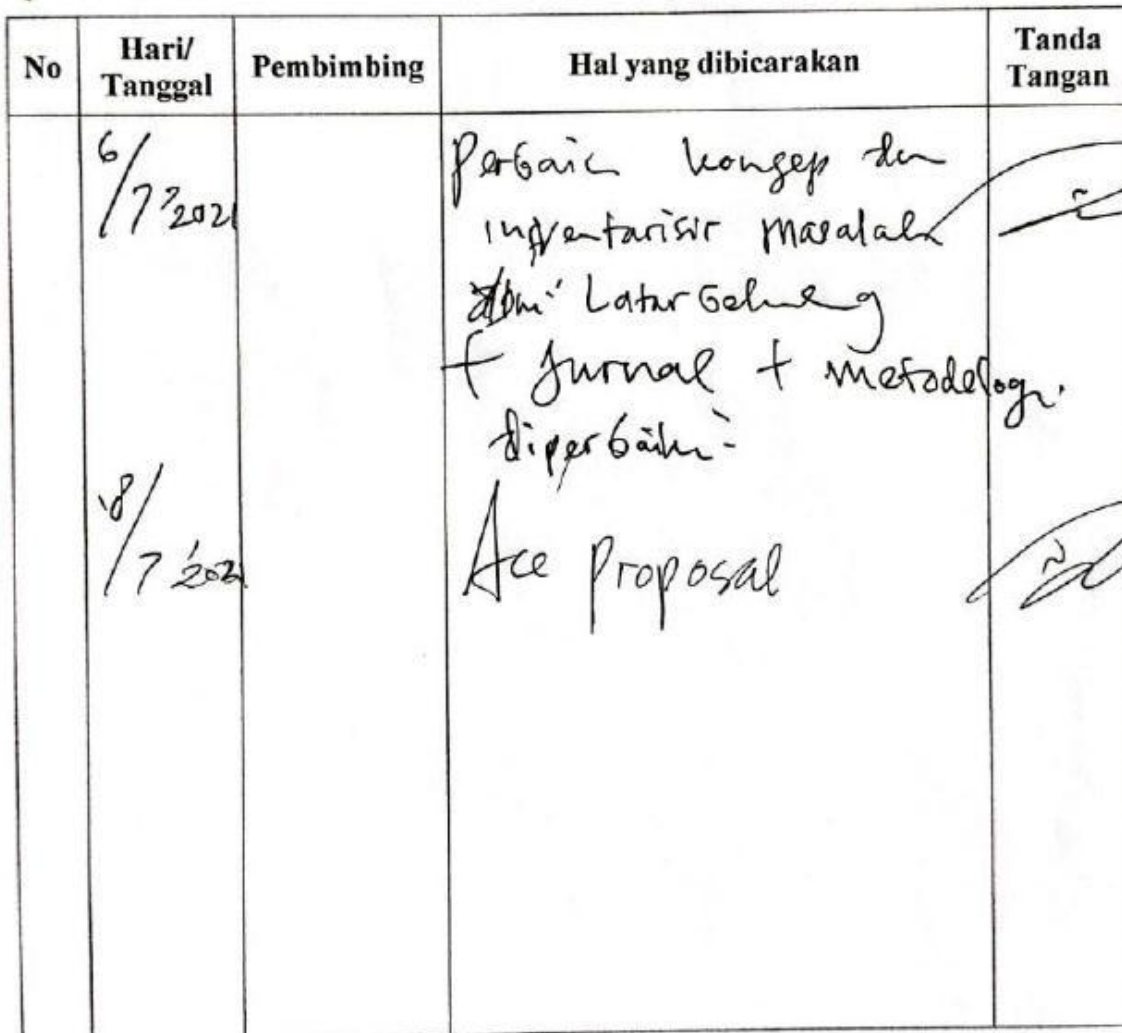 No Hari/ Tanggal Pembimbing Hal yang dibicarakan Tanda Tangan
6/7 2021 Perbaiki konsep dan
inventarisir masalah
Latar belakang
+ Jurnal + metodelogi
diperbaiki
/7 2021 Acc Proposal